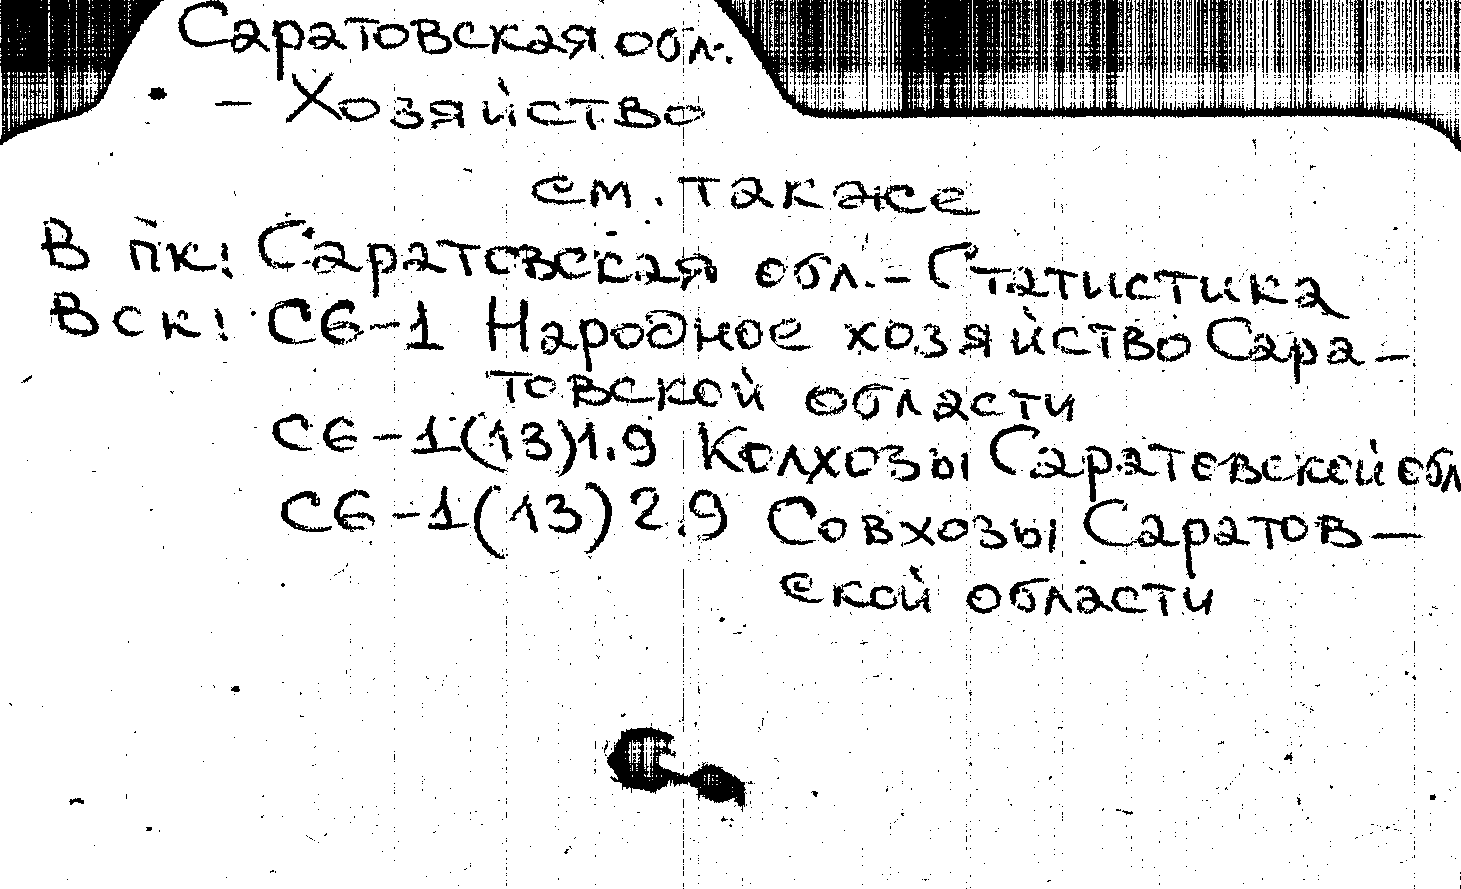 Саратовская обл.
- Хозяйство
см. также
В ПК: Саратовская обл. - Статистика
В СК: С6-1 Народное хозяйство Сара-
товской области
С6-1(13)1.9 Колхозы Саратовской обл
С6-1(13)2.9 Совхозы Саратов-
ской области